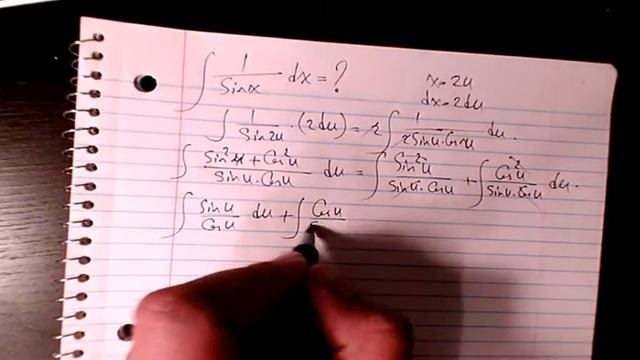 ∫ 1/Sinx dx = ? x = 2u
dx = 2du
∫ 1/Sin2u · (2du) = 2∫ 1/2Sinu·Cosu du.
∫ Sin²u + Cos²u/Sinu·Cosu du = ∫ Sin²u/Sinu·Cosu + ∫ Cos²u/Sinu·Cosu du.
∫ Sinu/Cosu du + ∫ Cosu/